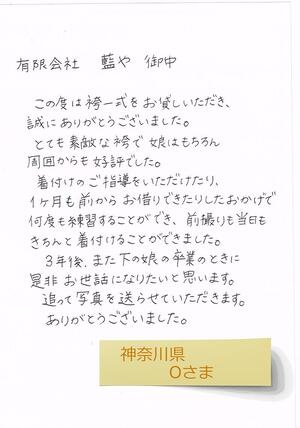 有限会社 藍や 御中
この度は袴一式をお貸しいただき、
誠にありがとうございました。
とても素敵な袴で娘はもちろん
周囲からも好評でした。
着付けのご指導をいただけたり、
1ヶ月も前からお借りできたりしたおかげで
何度も練習することができ、前撮りも当日も
きちんと着付けることができました。
3年後、また下の娘の卒業のときに
是非お世話になりたいと思います。
追って写真を送らせていただきます。
ありがとうございました。
神奈川県
Oさま